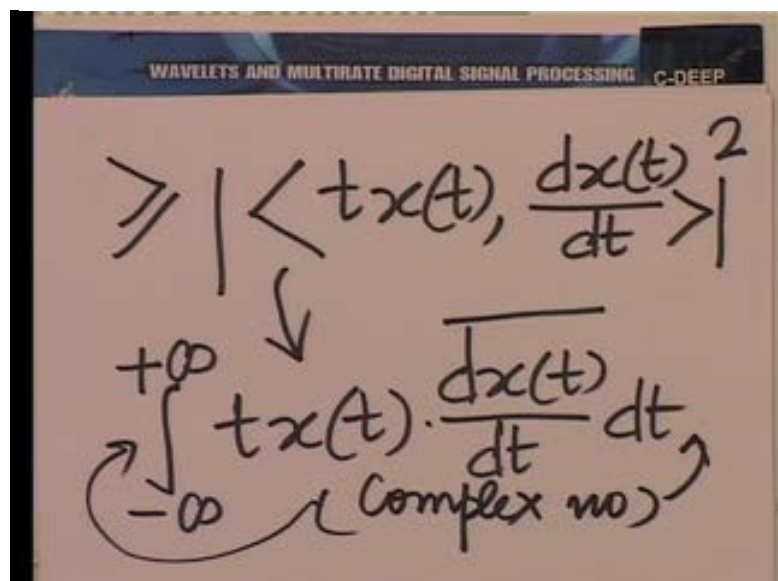 WAVELETS AND MULTIRATE DIGITAL SIGNAL PROCESSING C-DEEP
≥ |< tx(t), \frac{dx(t)}{dt} >|^2
↓
\int_{-∞}^{+∞} tx(t) · \overline{\frac{dx(t)}{dt}} dt
(Complex no)